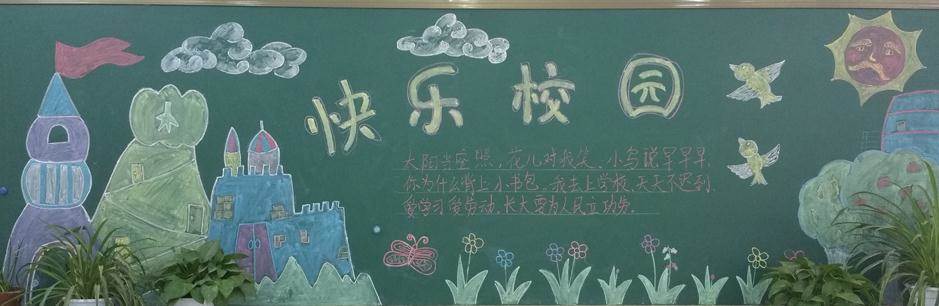 快乐校园
太阳当空照，花儿对我笑，小鸟说早早早，
你为什么背上小书包，我去上学校，天天不迟到，
爱学习爱劳动，长大要为人民立功劳。